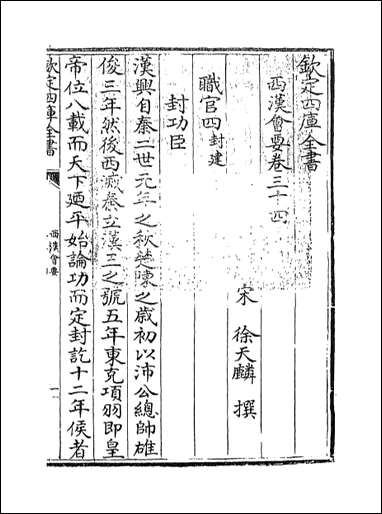 欽定四庫全書
西漢會要卷三十四
宋 徐天麟 撰
職官四封建
封功臣
漢興自秦二世元年之秋楚陳之歲初以沛公總帥雄
俊三年然後西滅秦立漢王之號五年東克項羽即皇
帝位八載而天下廼平始論功而定封訖十二年侯者
欽定四庫全書
西漢會要
一